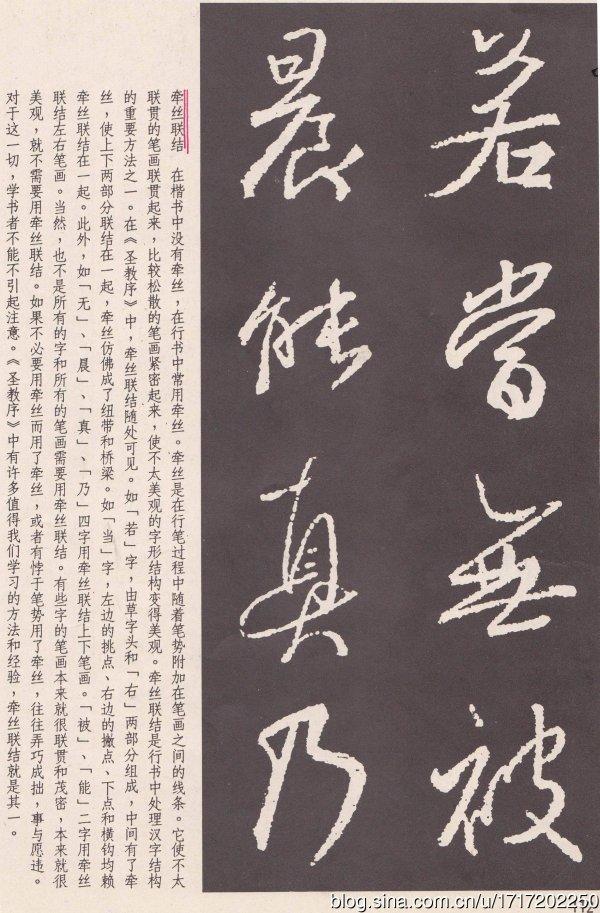 若當無被
晨能真乃
牵丝联结　在楷书中没有牵丝，在行书中常用牵丝。牵丝是在行笔过程中随着笔势附加在笔画之间的线条。它使不太
联贯的笔画联贯起来，比较松散的笔画紧密起来，使不太美观的字形结构变得美观。牵丝联结是行书中处理汉字结构
的重要方法之一。在《圣教序》中，牵丝联结随处可见。如「若」字，由草字头和「右」两部分组成，中间有了牵
丝，使上下两部分联结在一起，牵丝仿佛成了纽带和桥梁。如「当」字，左边的挑点、右边的撇点、下点和横钩均赖
牵丝联结在一起。此外，如「无」、「晨」、「真」、「乃」四字用牵丝联结上下笔画。「被」、「能」二字用牵丝
联结左右笔画。当然，也不是所有的字和所有的笔画需要用牵丝联结。有些字的笔画本来就很联贯和茂密，本来就很
美观，就不需要用牵丝联结。如果不必要用牵丝而用了牵丝，或者有悖于笔势用了牵丝，往往弄巧成拙，事与愿违。
对于这一切，学书者不能不引起注意。《圣教序》中有许多值得我们学习的方法和经验，牵丝联结就是其一。
blog.sina.com.cn/u/1717202250